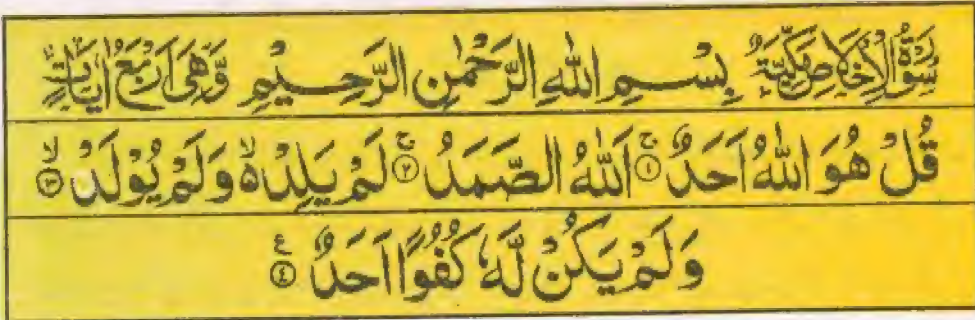 سُوْرَةُ الْاِخْلَاصِ مَكِّيَّةٌ بِسْمِ اللهِ الرَّحْمٰنِ الرَّحِيْمِ وَّهِىَ اَرْبَعُ اٰيَاتٍ
قُلْ هُوَ اللهُ اَحَدٌ ۚ﴿۱﴾ اَللهُ الصَّمَدُ ۚ﴿۲﴾ لَمْ يَلِدْ ۙ۬ وَلَمْ يُوْلَدْ ۙ﴿۳﴾
وَلَمْ يَكُنْ لَّهٗ كُفُوًا اَحَدٌ ﴿٤﴾ ع